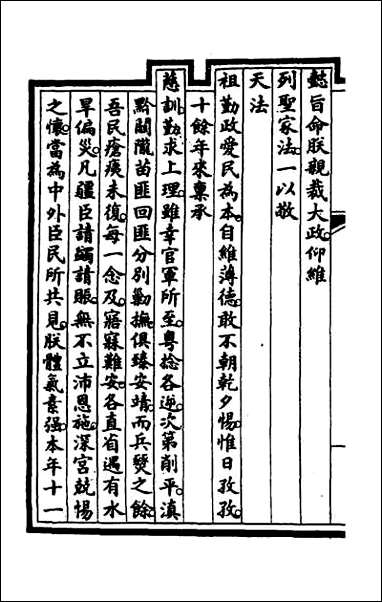 懿旨命朕親裁大政仰維
列聖家法一以敬
天法
祖勤政愛民為本自維薄德敢不朝乾夕惕惟日孜孜
十餘年來稟承
慈訓勤求上理雖幸官軍所至粵捻各逆次第削平滇
黔關隴苗匪回匪分別勦撫俱臻安靖而兵燹之餘
吾民瘡痍未復每一念及寤寐難安各直省遇有水
旱偏災凡疆臣請蠲請賑無不立沛恩施深宮兢惕
之懷當為中外臣民所共見朕體氣素强本年十一